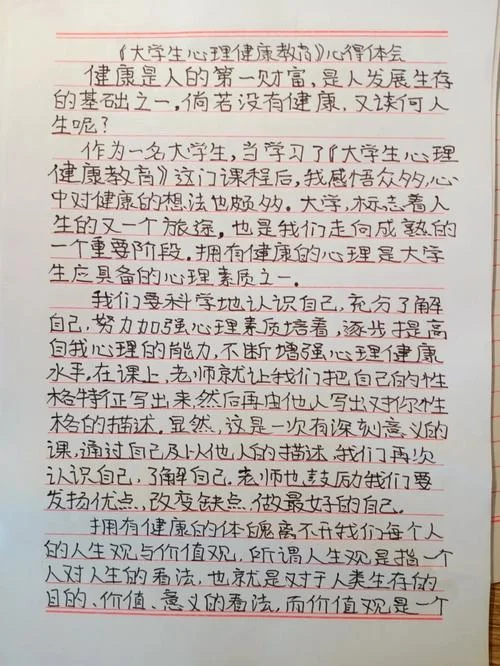 《大学生心理健康教育》心得体会
健康是人的第一财富，是人发展生存
的基础之一。倘若没有健康，又谈何人
生呢？
作为一名大学生，当学习了《大学生心理
健康教育》这门课程后，我感悟众多，心
中对健康的想法也颇多。大学，标志着人
生的又一个旅途，也是我们走向成熟的
一个重要阶段。拥有健康的心理是大学
生应具备的心理素质之一。
我们要科学地认识自己，充分了解
自己，努力加强心理素质培着，逐步提高
自我心理的能力，不断增强心理健康
水平。在课上，老师就让我们把自己的性
格特征写出来，然后再由他人写出对你性
格的描述。显然，这是一次有深刻意义的
课，通过自己及以他人的描述，我们再次
认识自己，了解自己。老师也鼓励我们要
发扬优点，改变缺点，做最好的自己。
拥有健康的体魄离不开我们每个人
的人生观与价值观，所谓人生观是指一个
人对人生的看法，也就是对于人类生存的
目的、价值、意义的看法，而价值观是一个